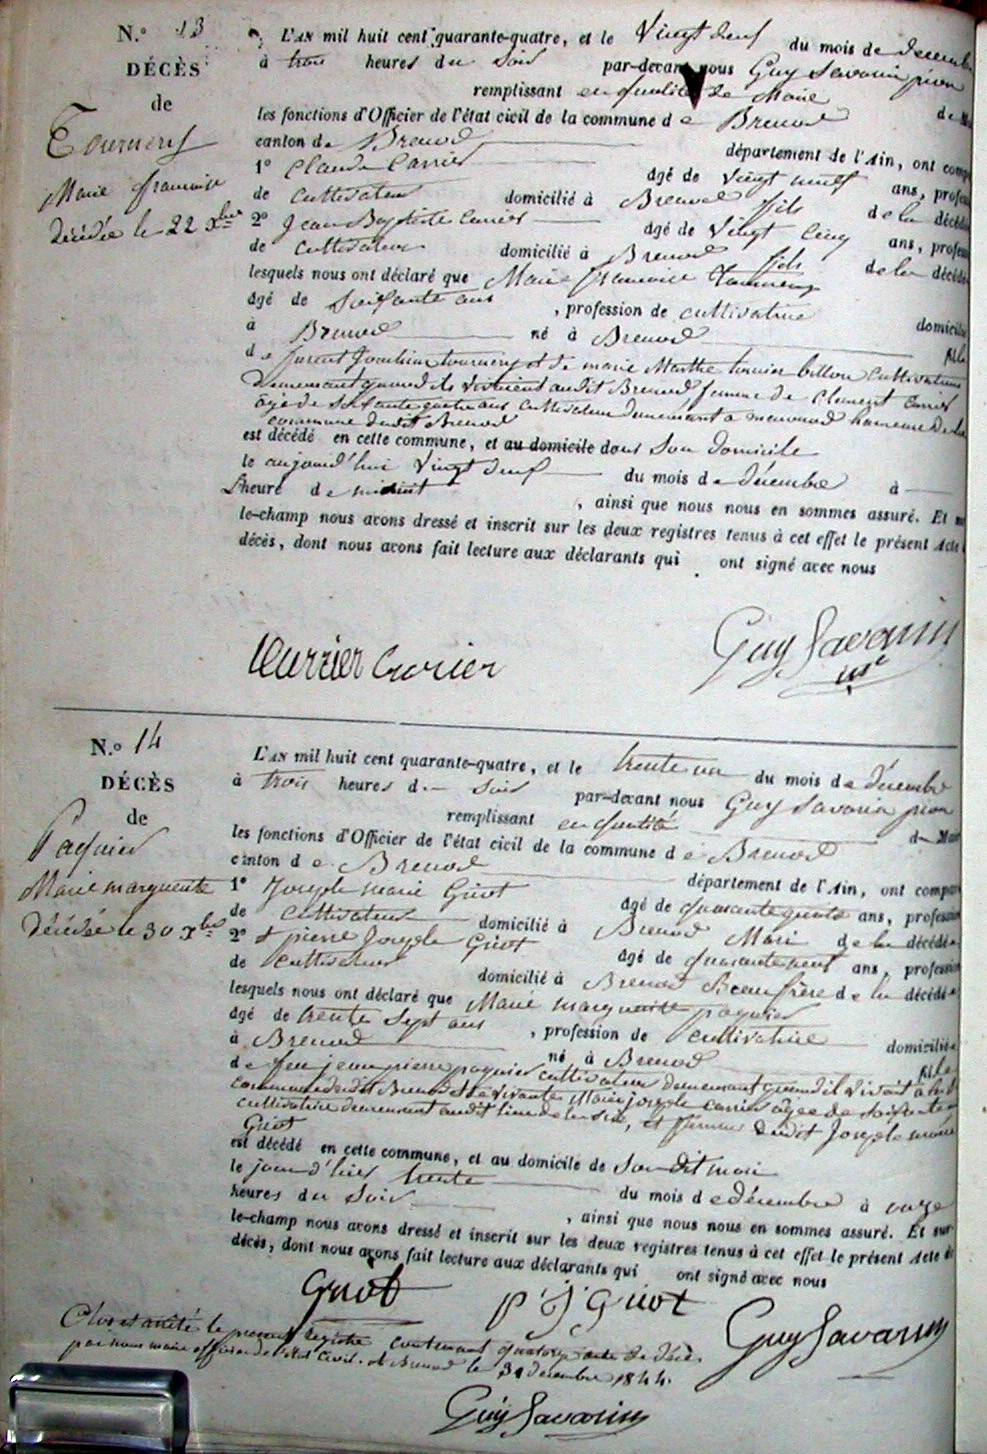 N.º 13
DÉCÈS
de
Marie françoise
Décédée le 22 Xbre
L'AN mil huit cent quarante-quatre, et le Vingt deux du mois de decembre
à trois heures du soir par-devant nous Guy Savarin pion
remplissant en qualité de Maire
les fonctions d'Officier de l'état civil de la commune de Brenod
canton de Brenod département de l'Ain, ont comp
1º Claude Carrier âgé de vingt neuf ans, profess
de cultivateur domicilié à Brenod fils de la décédée
2º Jean Baptiste Carrier âgé de Vingt cinq ans, profess
de cultivateur domicilié à Brenod fils de la décédée
lesquels nous ont déclaré que Marie françoise
âgé de Soixante ans, profession de cultivatrice domicilié
à Brenod né à Brenod fille
de Joachim et de marie Marthe billon cultivateurs
Demeurant quand ils vivaient audit Brenod femme de Clement Carrier
âgé de Soixante quatre ans cultivateur demeurant a hameau de la
commune dudit Brenod
est décédé en cette commune, et au domicile dans Son domicile
le aujourd'hui Vingt deux du mois de décembre à
L'heure de minuit, ainsi que nous nous en sommes assuré. Et
le-champ nous avons dressé et inscrit sur les deux registres tenus à cet effet le présent Acte
décès, dont nous avons fait lecture aux déclarants qui ont signé avec nous
Currier Carrier Guy Savarin
N.º 14
DÉCÈS
de
Paquier
Marie marguerite
Décédée le 30 Xbre
L'AN mil huit cent quarante-quatre, et le trente un du mois de décembre
à trois heures du soir par-devant nous Guy Savarin pion
remplissant en qualité de Maire
les fonctions d'Officier de l'état civil de la commune de Brenod
canton de Brenod département de l'Ain, ont compar
1º Joseph marie Griot âgé de quarante quatre ans, profession
de cultivateur domicilié à Brenod Mari de la décédée
2º et pierre Joseph Griot âgé de quarante neuf ans, profession
de cultivateur domicilié à Brenod Beau frère de la décédée
lesquels nous ont déclaré que Marie marguerite paquier
âgé de trente Sept ans, profession de cultivatrice domicilié
à Brenod né à Brenod fille
de feu jean pierre paquier cultivateur demeurant quand il vivait à
commune dudit Brenod et de vivante Marie joseph carrier âgée de soixante
cultivatrice demeurant audit lieu de, et femme dudit Joseph marie
Griot
est décédé en cette commune, et au domicile de Son dit mari
le jour d'hier trente du mois de décembre à onze
heures du Soir, ainsi que nous nous en sommes assuré. Et sur
le-champ nous avons dressé et inscrit sur les deux registres tenus à cet effet le présent Acte de
décès, dont nous avons fait lecture aux déclarants qui ont signé avec nous
Griot p J Griot Guy Savarin
Clos et arrêté le présent registre contenant quatorze acte de décès
par nous maire officier de l'état civil. A Brenod le 31 decembre 1844.
Guy Savarin